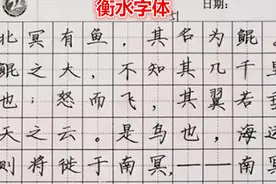 衡水字体
日期:
北冥有鱼，其名为鲲。
鲲之大，不知其几千里
也；怒而飞，其翼若垂
天之云。是鸟也，海运
则将徙于南冥，——南冥